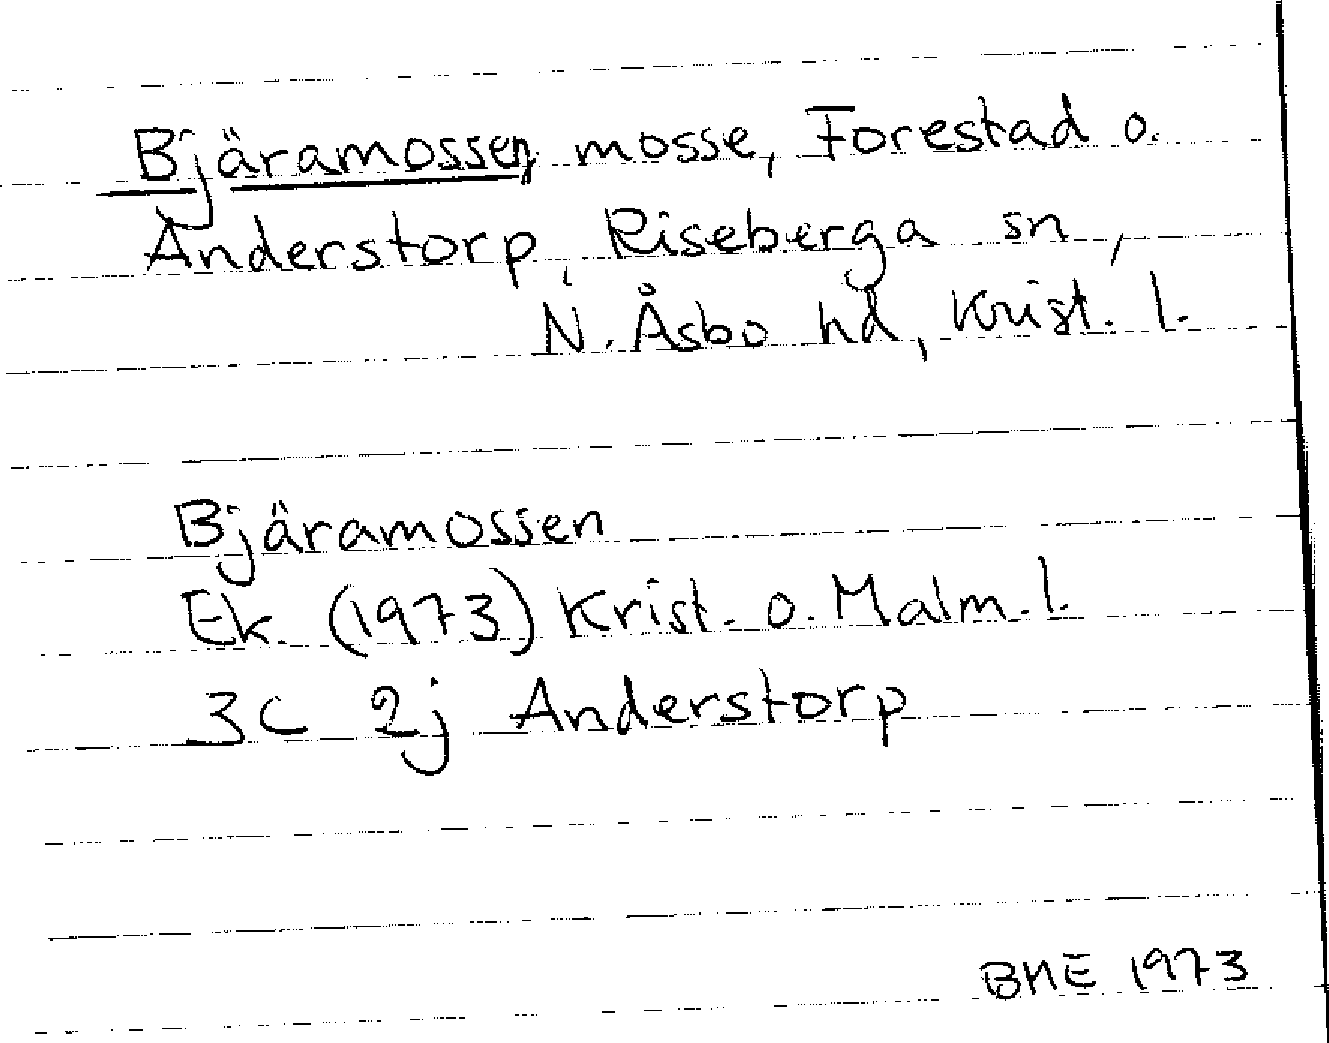 Bjäramossen, mosse, Forestad o.
Anderstorp, Riseberga sn,
N. Åsbo hd, Krist. l.
Bjäramossen
Ek. (1973) Krist. o. Malm. l.
3C 2j Anderstorp
BME 1973